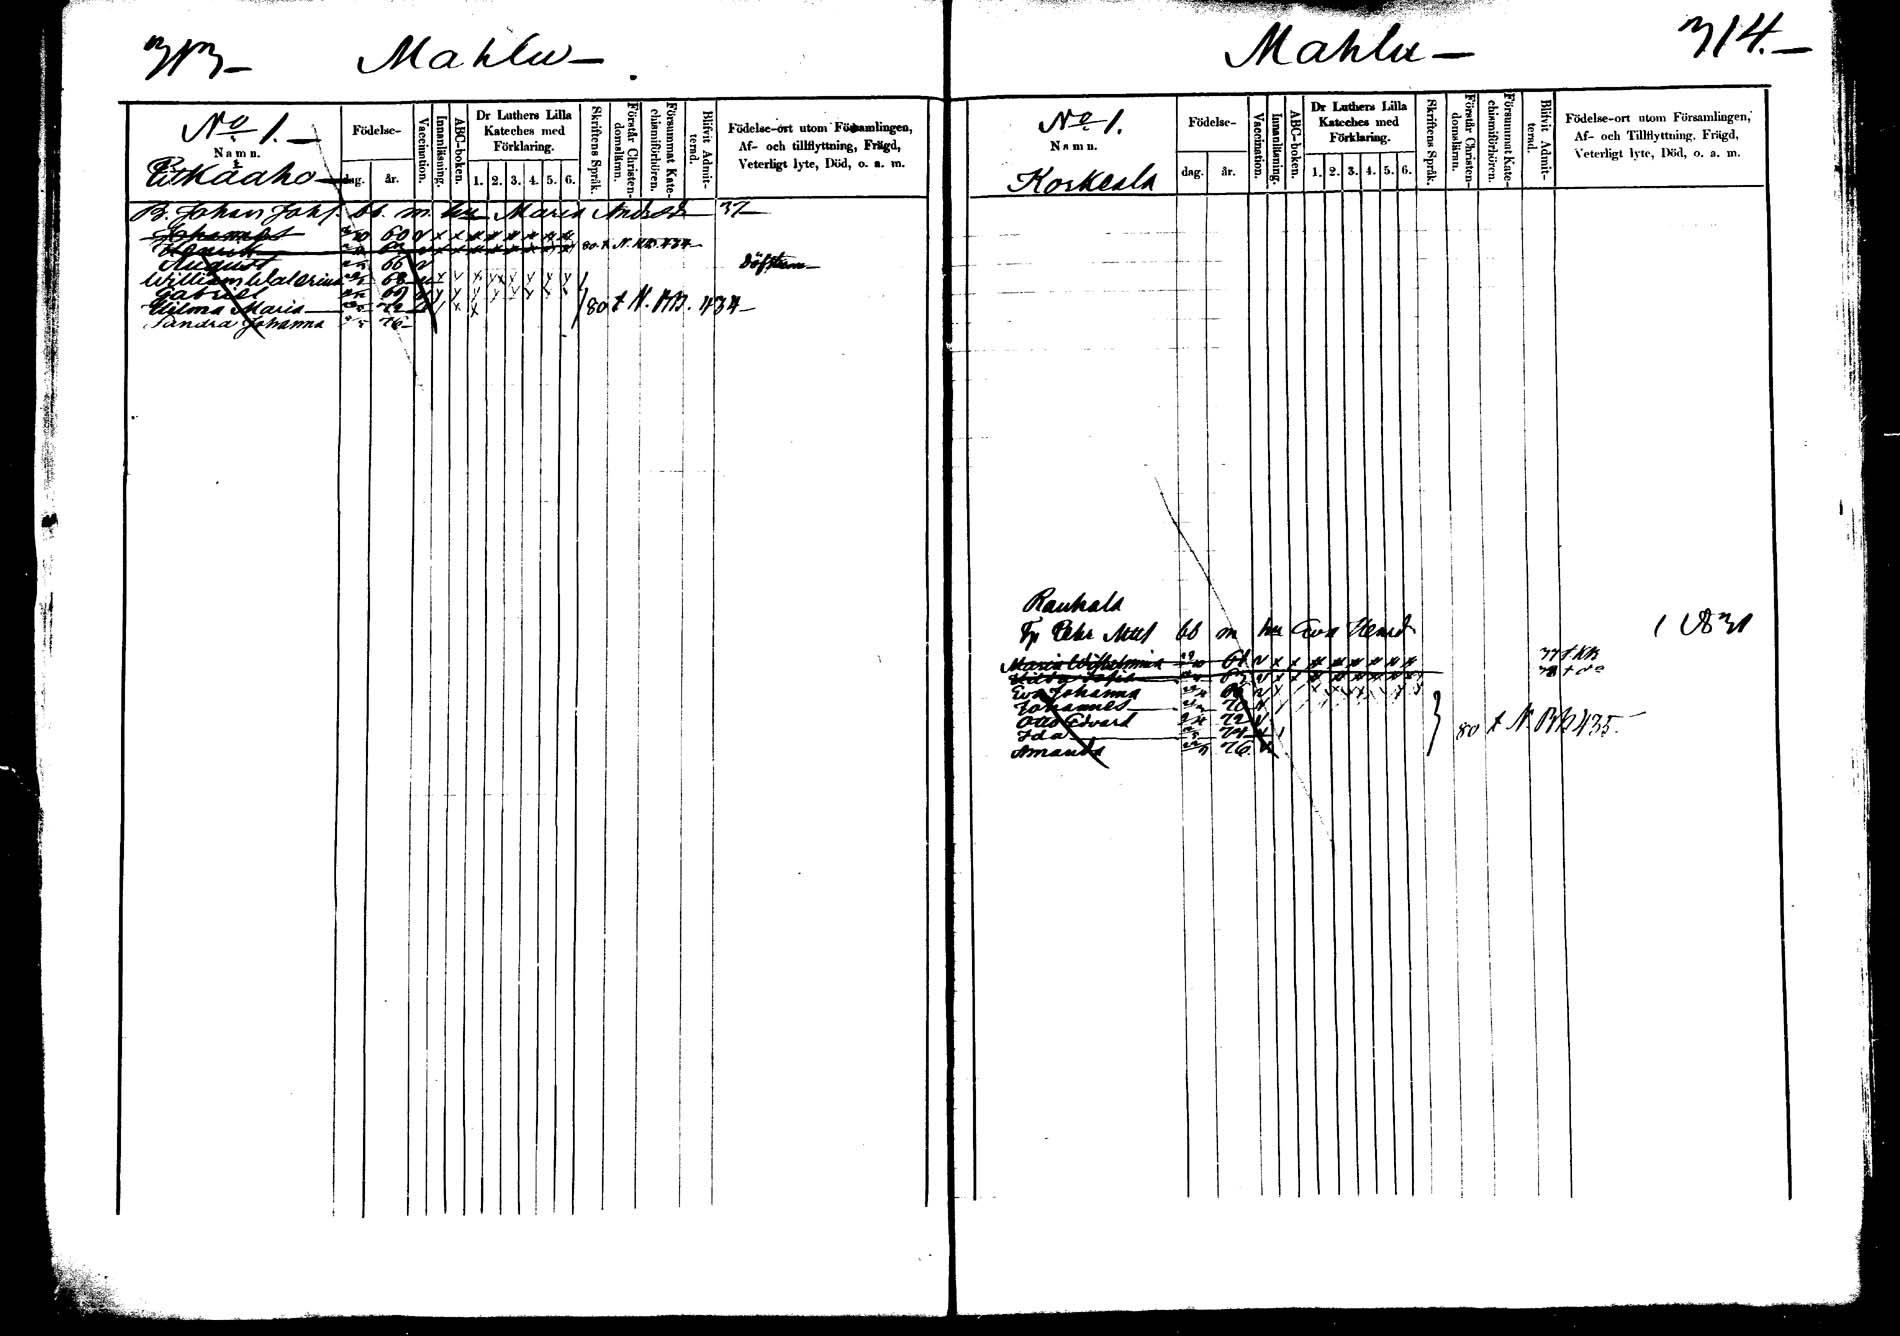 313 Mahlu
No 1.
Namn.
Födelse-
dag. år.
Vaccination.
Innanläsning.
ABC-boken.
Dr Luthers Lilla
Kateches med
Förklaring.
1. 2. 3. 4. 5. 6.
Skriftens Språk.
Förstår Christen-
domslämn.
Försummat Kate-
chismiförhören.
Blifvit Admit-
terad.
Födelse-ort utom Församlingen,
Af- och tillflyttning, Frägd,
Veterligt lyte, Död, o. a. m.
B. Johan Joh. bb. m. hu Maria 37
Johannes 60
Henrik 80 t N. KB. 434
August 66 döfstum
William Walerius 68
Gabriel 69
Hilma Maria 72 80 t N. KB. 434
Sandra Johanna 76
Mahlu 314.
No 1.
Namn.
Koskeala
Födelse-
dag. år.
Vaccination.
Innanläsning.
ABC-boken.
Dr Luthers Lilla
Kateches med
Förklaring.
1. 2. 3. 4. 5. 6.
Skriftens Språk.
Förstår Christen-
domslämn.
Försummat Kate-
chismiförhören.
Blifvit Admit-
terad.
Födelse-ort utom Församlingen,
Af- och Tillflyttning, Frägd,
Veterligt lyte, Död, o. a. m.
Rauhala
Petr Matts bb m hu Eva Henrd
Maria Wilhelmina 61 77 t KB
Hilda Sofia
Eva Johanna
Johannes 70
Otto Edvard 72
Ida 74 80 t N. KB 435.
Amanda 76